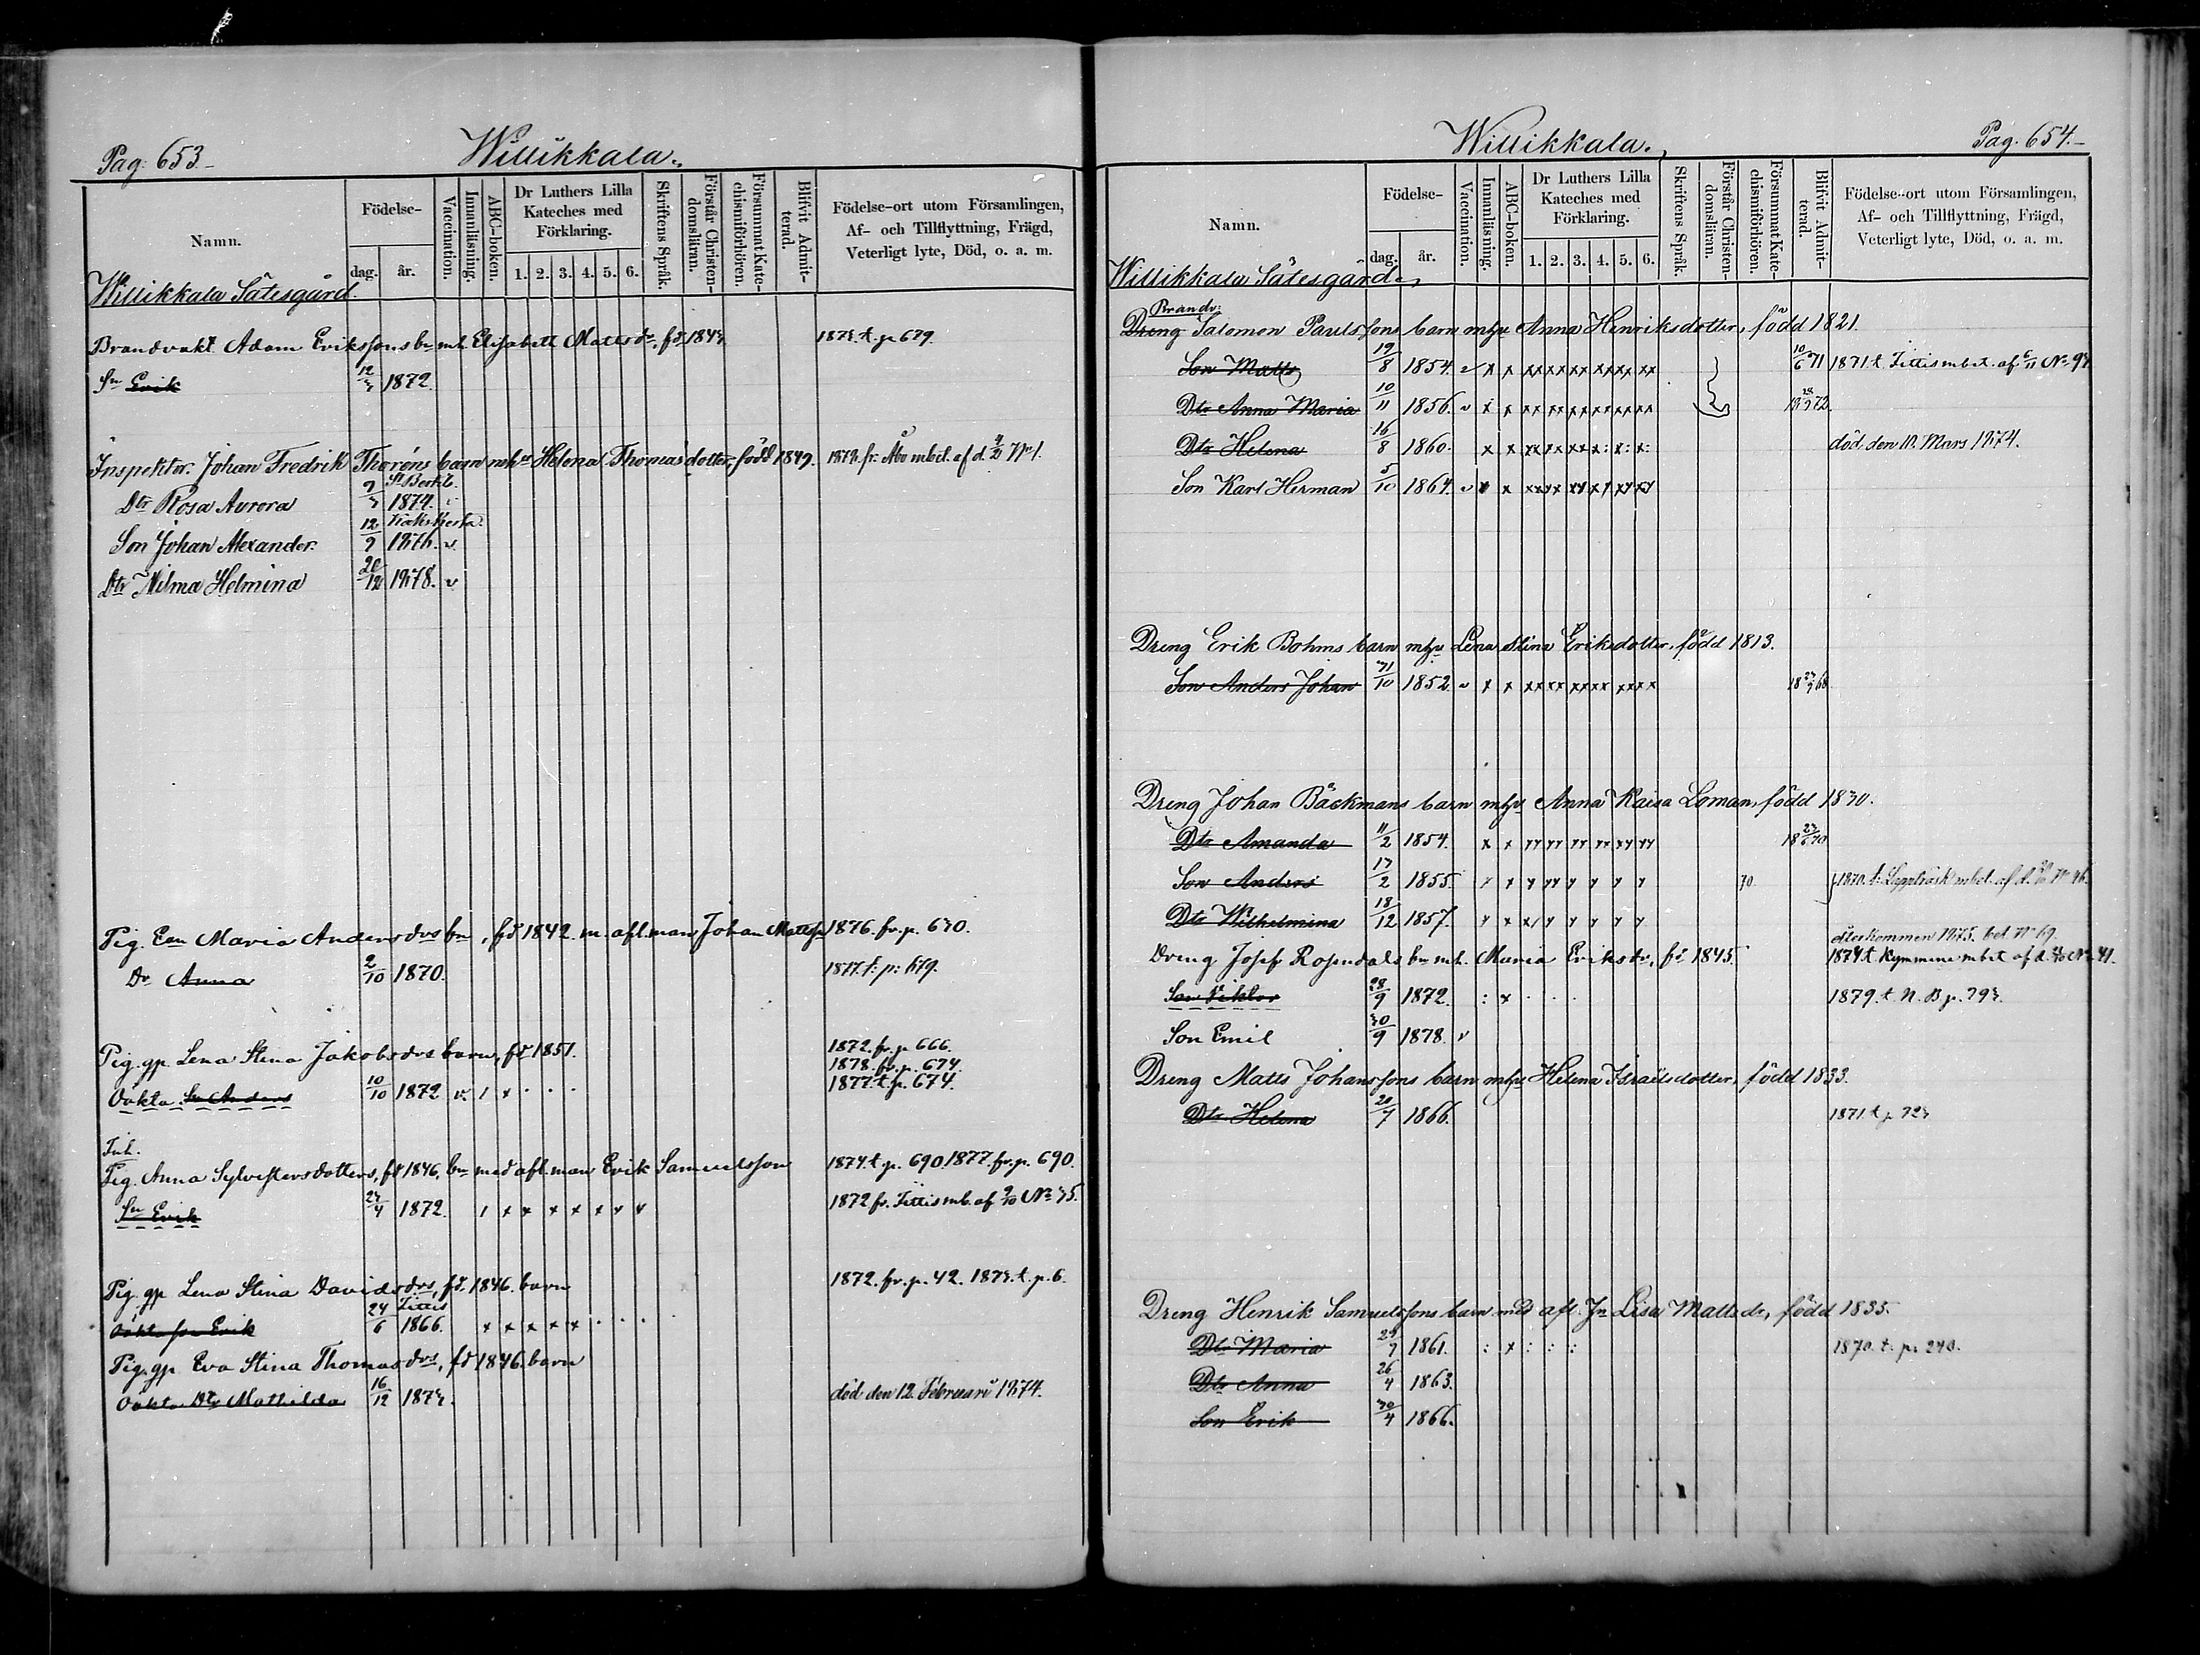 Pag. 653.
Willikkala.
Namn.
Födelse-
dag.
år.
Vaccination.
Innanläsning.
ABC-boken.
Dr Luthers Lilla Kateches med Förklaring.
1. 2. 3. 4. 5. 6.
Skriftens Språk.
Förstår Christendomsläran.
Försummat Katechismiförhören.
Blifvit Admitterad.
Födelse-ort utom Församlingen,
Af- och Tillflyttning, Frägd,
Veterligt lyte, Död, o. a. m.
Willikkala Sätesgård.
Brandvakt Adam Erikssons bn mh. Elisabett Mattsdr, fd 1843. 1873. t. p 679.
Sn Erik 12/3 1872.
Inspektor Johan Fredrik Thoréns barn mhu Helena Thomasdotter, född 1849. fr. Åbo mbet. af d. No 1.
St Bertils
Dtr Rosa Aurora 9/3 1874.
Son Johan Alexander. 12/9 1876. v
Dtr Hilma Helmina 20/12 1878. v
Pig. Eva Maria Andersdrs bn, fd 1842. m. afl. man Johan Mattsn 1876. fr. p. 630.
Dr Anna 2/10 1870. 1877. t. p. 679.
Pig. gp Lena Stina Jakobsdrs barn, fd 1851. 1872. fr. p. 666.
1878. fr. p. 674.
Oäkta Sn Anders 10/10 1872 v. 1877. t. p. 674.
Inh.
Pig. Anna Sylvestersdotters, fd 1846, bn med afl. man Erik Samuelsson 1874. t. p. 690. 1877. fr. p. 690.
Sn Erik 23/4 1872. 1872 fr. Jittis mb. af 9/10 No 35.
Pig. gp Lena Stina Davidsdrs, fd. 1846. barn 1872. fr. p. 42. 1873. t. p. 6.
Jittis
Oäkta son Erik 24/6 1866. x x x x x
Pig. gp Eva Stina Thomasdrs, fd 1846. barn
Oäkta Dtr Mathilda 16/12 1873. död den 12. Februari 1874.
Willikkala.
Pag. 654.
Namn.
Födelse-
dag.
år.
Vaccination.
Innanläsning.
ABC-boken.
Dr Luthers Lilla Kateches med Förklaring.
1. 2. 3. 4. 5. 6.
Skriftens Språk.
Förstår Christendomsläran.
Försummat Katechismiförhören.
Blifvit Admitterad.
Födelse-ort utom Församlingen,
Af- och Tillflyttning, Frägd,
Veterligt lyte, Död, o. a. m.
Willikkala Sätesgård.
Brandv:
Dreng Salomon Paulssons barn mhu Anna Henriksdotter, född 1821.
Son Matts 19/8 1854. v x x xx xx xx xx xx xx 10/6 71 1871. t. Jittis mbet. af 6/11 No 93.
Dtr Anna Maria 10/11 1856. v x x xx xx xx xx xx xx 72.
Dtr Helena 16/8 1860. x x död den 10. Mars 1874.
Son Karl Herman 5/10 1864. v x x
Dreng Erik Bohms barn mhu Lena Stina Eriksdotter, född 1813.
Son Anders Johan 31/10 1852. v x x xx xx xx xx xx xx 68
Dreng Johan Bäckmans barn mhu Anna Kaisa Loman, född 1830.
Dtr Amanda 11/2 1854. x x 18 23/6 70
Son Anders 17/2 1855. 70. 1870. t. Lappträsk mbet. af d.
Dtr Wilhelmina 18/12 1857.
återkommen 1875. bet. No 69.
Dreng Josef Rosendals bn mh. Maria Eriksdr, fd 1845. 1874 t. Kymmene mbet af d. No 41.
Son Viktor 28/9 1872. : x 1879. t. N. B p. 793.
Son Emil 30/9 1878. v
Dreng Matts Johanssons barn mhu Helena Israelsdotter, född 1833.
Dtr Helena 20/7 1866. 1871 t. p. 723
Dreng Henrik Samuelssons barn med afl. Jn Lisa Mattsdr, född 1835.
Dtr Maria 29/7 1861. : x : : : 1870. t. p. 240.
Dtr Anna 26/4 1863.
Son Erik 30/4 1866.